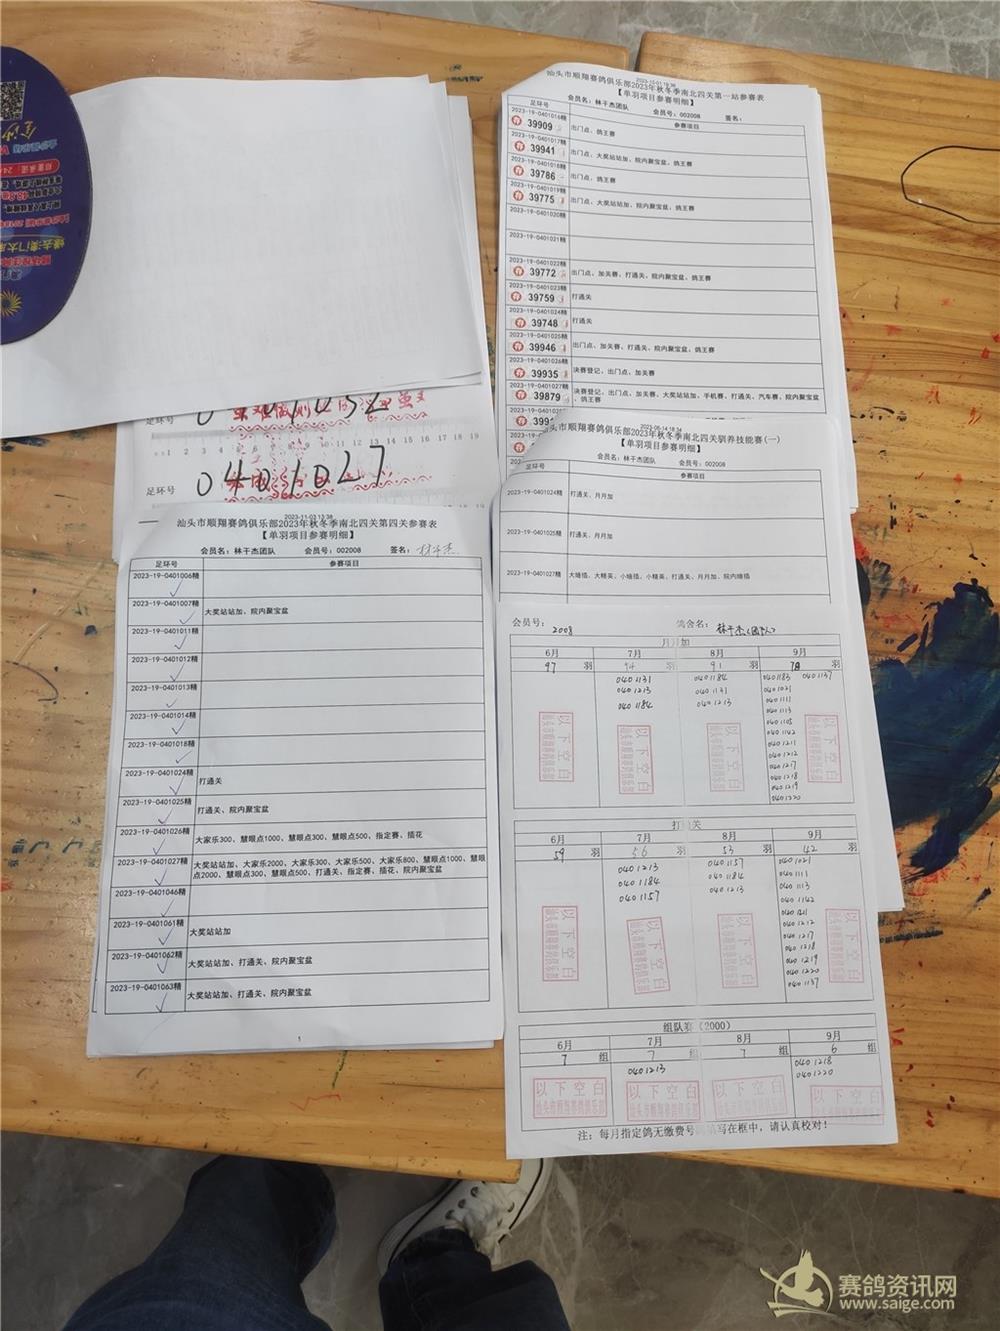 汕头市顺翔赛鸽俱乐部2023年秋冬季南北四关第一站参赛表
【单羽项目参赛明细】
会员名：林干杰团队 会员号：002008 签名：
足环号 参赛项目
2023-19-0401016精
39909 出门点、鸽王赛
2023-19-0401017精
39941 出门点、大奖站站加、院内聚宝盆、鸽王赛
2023-19-0401018精
39786 出门点、鸽王赛
2023-19-0401019精
39775 出门点、大奖站站加、院内聚宝盆、鸽王赛
2023-19-0401020精
2023-19-0401021精
2023-19-0401022精
39772 出门点、加关赛、打通关、院内聚宝盆、鸽王赛
2023-19-0401023精
39759 打通关
2023-19-0401024精
39748 打通关
2023-19-0401025精
39946 出门点、加关赛、打通关、院内聚宝盆、鸽王赛
2023-19-0401026精
39935 决赛登记、出门点、加关赛
2023-19-0401027精
39879 决赛登记、出门点、加关赛、大奖站站加、手机赛、打通关、汽车赛、院内聚宝盆
、鸽王赛
足环号
足环号 0401027
2023-06-14 18:34
汕头市顺翔赛鸽俱乐部2023年秋冬季南北四关驯养技能赛(一)
【单羽项目参赛明细】
会员名：林干杰团队 会员号：002008
足环号 参赛项目
2023-19-0401024精 打通关、月月加
2023-19-0401025精 打通关、月月加
2023-19-0401027精 大暗插、大精英、小暗插、小精英、打通关、月月加、院内暗插
2023-11-03 13:38
汕头市顺翔赛鸽俱乐部2023年秋冬季南北四关第四关参赛表
【单羽项目参赛明细】
会员名：林干杰团队 会员号：002008 签名：林干杰
足环号 参赛项目
2023-19-0401006精
2023-19-0401007精 大奖站站加、院内聚宝盆
2023-19-0401011精
2023-19-0401012精
2023-19-0401013精
2023-19-0401014精
2023-19-0401018精
2023-19-0401024精 打通关
2023-19-0401025精 打通关、院内聚宝盆
2023-19-0401026精 大家乐300、慧眼点1000、慧眼点300、慧眼点500、指定赛、插花
2023-19-0401027精 大奖站站加、大家乐2000、大家乐300、大家乐500、大家乐800、慧眼点1000、慧眼
点2000、慧眼点300、慧眼点500、打通关、指定赛、插花、院内聚宝盆
2023-19-0401046精
2023-19-0401061精 大奖站站加
2023-19-0401062精 大奖站站加、打通关、院内聚宝盆
2023-19-0401063精 大奖站站加、打通关、院内聚宝盆
1
会员号：2008 鸽舍名：林干杰(团队)
月月加
6月 7月 8月 9月
97 羽 94 羽 91 羽 羽
0401131 0401184 0401183 0401137
0401213 0401131 0401021
0401184 0401213 0401111
0401113
0401105
0401142
0401211
0401212
0401217
0401218
0401219
0401220
以下空白
汕头市顺翔赛鸽俱乐部
以下空白
汕头市顺翔赛鸽俱乐部
以下空白
汕头市顺翔赛鸽俱乐部
以下空白
汕头市顺翔赛鸽俱乐部
打通关
6月 7月 8月 9月
59 羽 56 羽 53 羽 42 羽
0401213 0401157 0401021
0401184 0401184 0401111
0401157 0401213 0401113
0401142
0401212
0401217
0401218
0401219
0401220
0401137
以下空白
汕头市顺翔赛鸽俱乐部
以下空白
汕头市顺翔赛鸽俱乐部
以下空白
汕头市顺翔赛鸽俱乐部
以下空白
汕头市顺翔赛鸽俱乐部
组队赛（2000）
6月 7月 8月 9月
7 组 7 组 7 组 6 组
0401213 0401218
0401220
以下空白 以下空白 以下空白 以下空白
汕头市顺翔赛鸽俱乐部 汕头市顺翔赛鸽俱乐部 汕头市顺翔赛鸽俱乐部 汕头市顺翔赛鸽俱乐部
注：每月指定鸽无缴费号码填写在框中，请认真校对！
赛鸽资讯网
www.saige.com